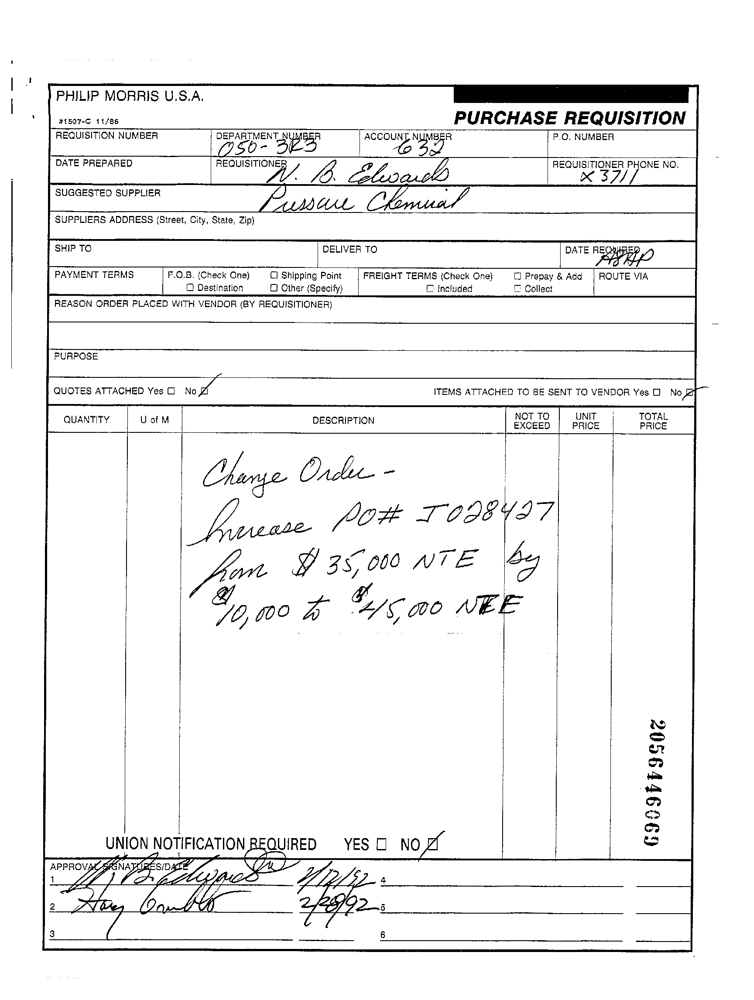 PHILIP MORRIS U.S.A.
#1507-C 11/86
PURCHASE REQUISITION
REQUISITION NUMBER DEPARTMENT NUMBER ACCOUNT NUMBER P.O. NUMBER
050-3R3 632
DATE PREPARED REQUISITIONER REQUISITIONER PHONE NO.
N. B. Edwards X3711
SUGGESTED SUPPLIER
Chemical
SUPPLIERS ADDRESS (Street, City, State, Zip)
SHIP TO DELIVER TO DATE REQUIRED
ASAP
PAYMENT TERMS F.O.B. (Check One) ☐ Shipping Point FREIGHT TERMS (Check One) ☐ Prepay & Add ROUTE VIA
☐ Destination ☐ Other (Specify) ☐ Included ☐ Collect
REASON ORDER PLACED WITH VENDOR (BY REQUISITIONER)
PURPOSE
QUOTES ATTACHED Yes ☐ No ☑ ITEMS ATTACHED TO BE SENT TO VENDOR Yes ☐ No ☑
QUANTITY U of M DESCRIPTION NOT TO EXCEED UNIT PRICE TOTAL PRICE
Change Order -
Increase PO# I028427
from $35,000 NTE by
$10,000 to $45,000 NTE
2056446069
UNION NOTIFICATION REQUIRED YES ☐ NO ☑
APPROVAL SIGNATURES/DATE
1 N. B. Edwards 2/12/92 4
2 2/28/92 5
3 6